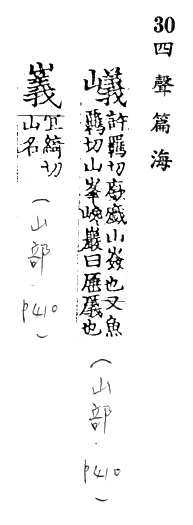 30 四聲篇海
嶬
許羈切山也又魚
羈切山峯巖曰也
(山部.p410)
綺切
山名
(山部.p410)